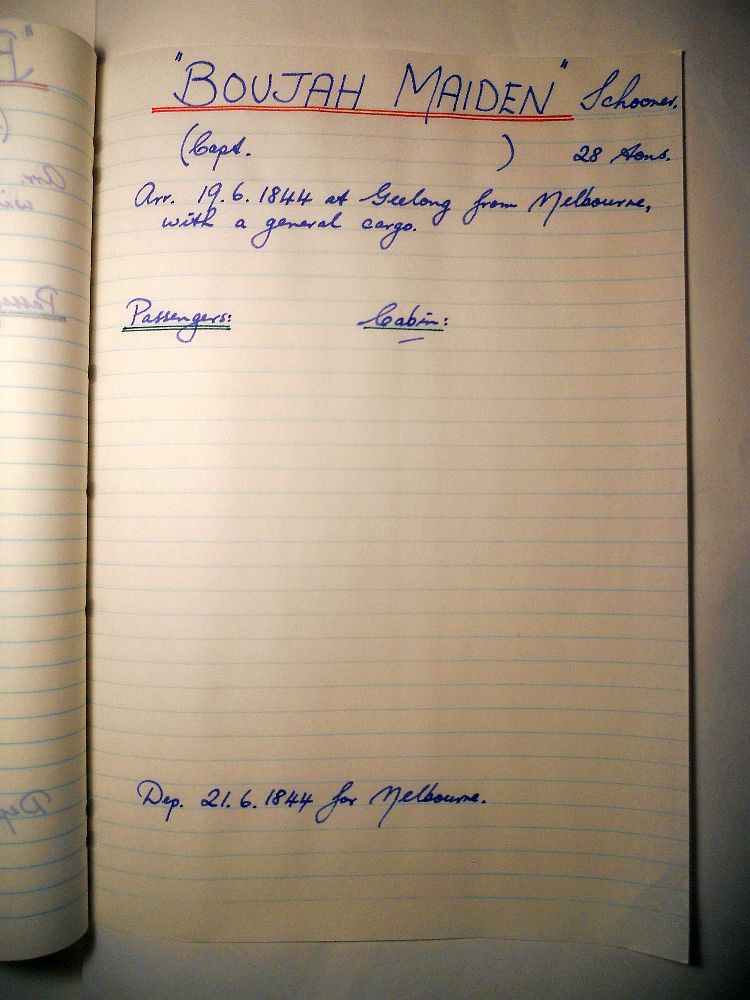 "BOUJAH MAIDEN" Schooner.
(Capt. ) 28 tons.
Arr. 19.6.1844 at Geelong from Melbourne,
with a general cargo.
Passengers: Cabin:
Dep. 21.6.1844 for Melbourne.